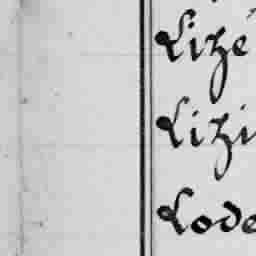 Lizé
Lizi
Lode